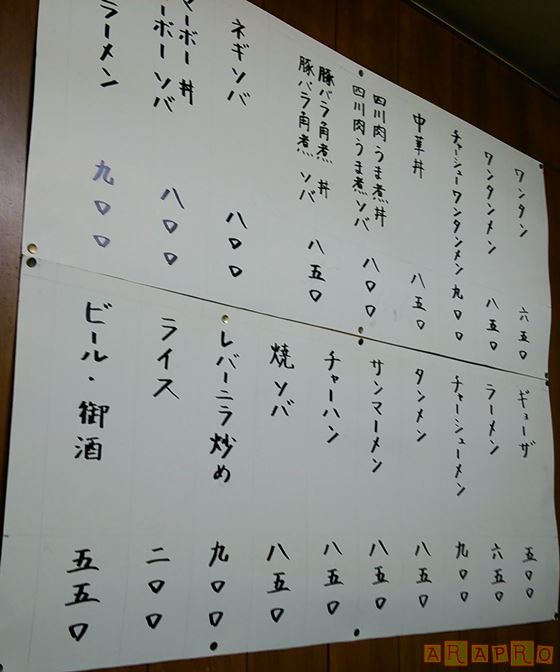 ワンタン 六五〇
ワンタンメン 八五〇
チャーシューワンタンメン 九〇〇
中華丼 八五〇
四川肉うま煮丼
四川肉うま煮ソバ 八〇〇
豚バラ角煮 丼
豚バラ角煮 ソバ 八五〇
ネギソバ 八〇〇
マーボー 丼
ーボー ソバ 八〇〇
ラーメン 九〇〇
ギョーザ 五〇〇
ラーメン 六五〇
チャーシューメン 九〇〇
タンメン 八五〇
サンマーメン 八五〇
チャーハン 八五〇
焼ソバ 八五〇
レバーニラ炒め 九〇〇
ライス 二〇〇
ビール・御酒 五五〇
ARAPRO